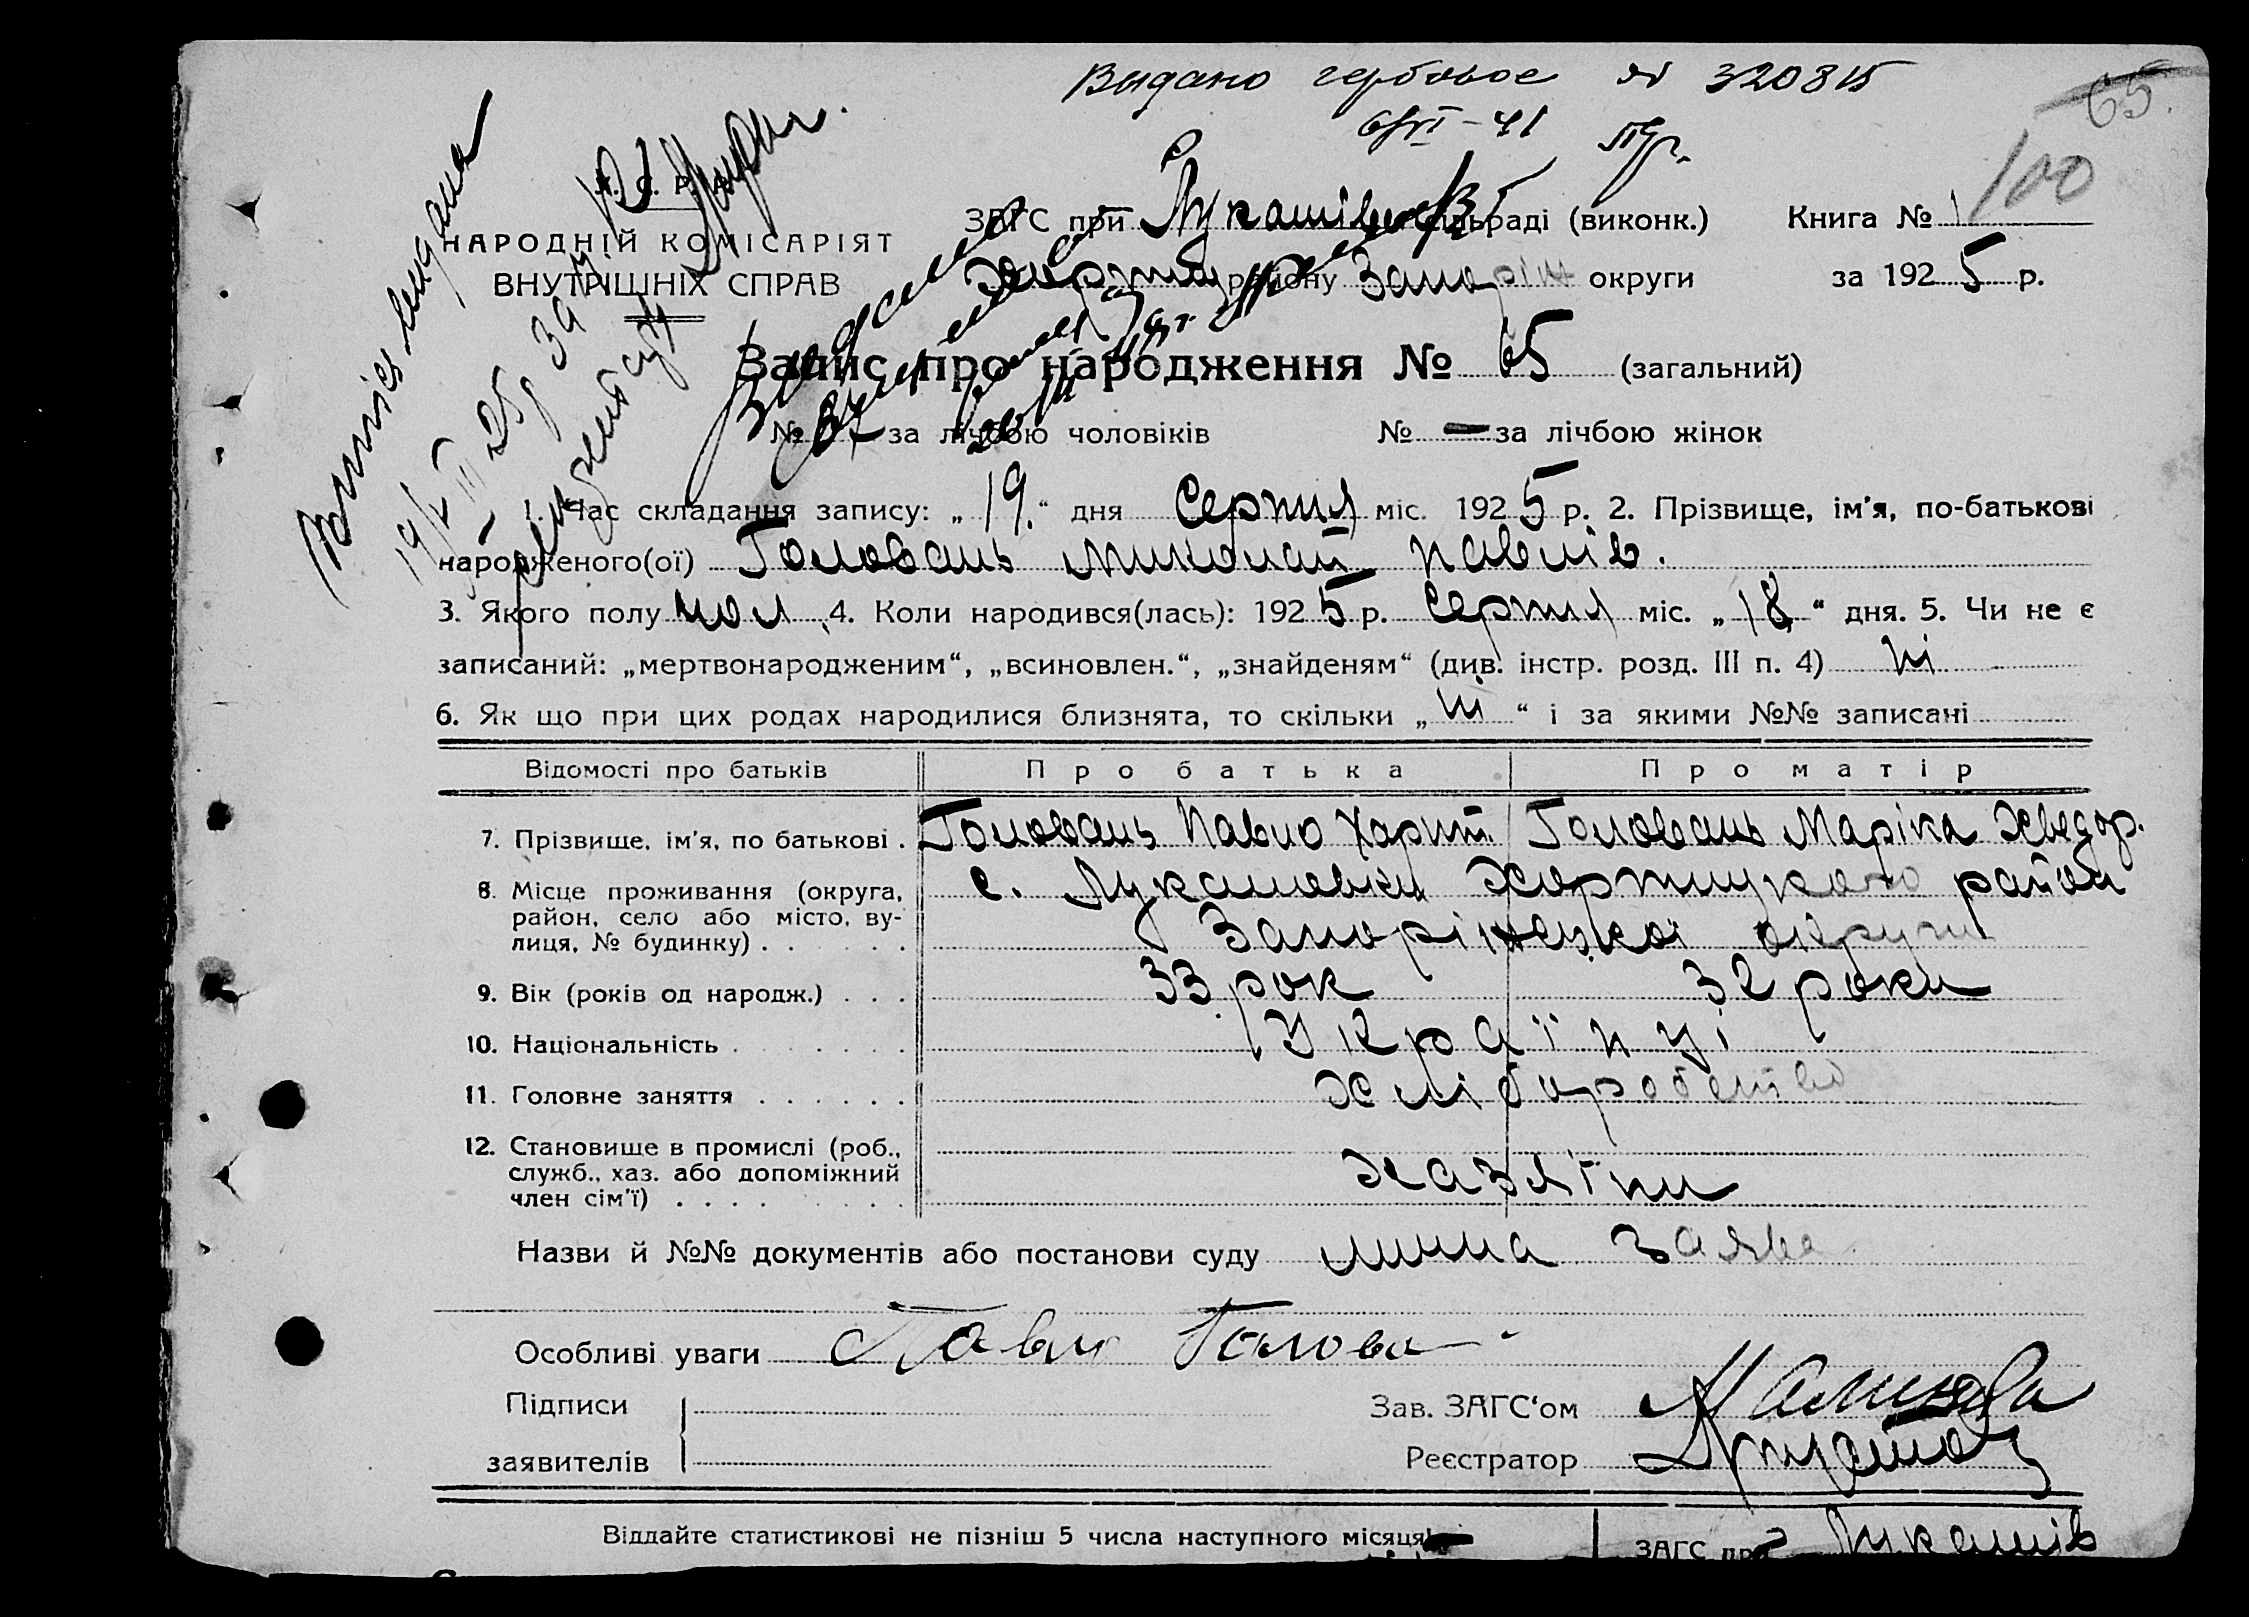 Видано гербовое № 320815
65.
6/VI-41
100
ЗАГС при Лукашівск сільраді (виконк.) Книга № 1
НАРОДНІЙ КОМІСАРІЯТ
ВНУТРІШНІХ СПРАВ
Хортиц району Запоріж округи за 1925 р.
Запис про народження № 65 (загальний)
№ 37 за лічбою чоловіків № — за лічбою жінок
1. Час складання запису: „19.“ дня Серпня міс. 1925 р. 2. Прізвище, ім'я, по-батькові
народженого(ої) Головань Миколай Павлів.
3. Якого полу чол 4. Коли народився(лась): 1925 р. Серпня міс. „18“ дня. 5. Чи не є
записаний: „мертвонародженим“, „всиновлен.“, „знайденям“ (див. інстр. розд. III п. 4) ні
6. Як що при цих родах народилися близнята, то скільки „ні“ і за якими №№ записані
Відомості про батьків Про батька Про матір
7. Прізвище, ім'я, по батькові . Головань Павло Харит. Головань Маріка Хведор.
8. Місце проживання (округа, район, село або місто, вулиця, № будинку) . . . с. Лукашовки Хортицького району
Запоріжської округи
9. Вік (років од народж.) . . . 33 рок 32 роки
10. Національність . . . . . . . Українці
11. Головне заняття . . . . . . Хліборобство
12. Становище в промислі (роб.,
служб., хаз. або допоміжний
член сім'ї) . . . . . . . . хазяїни
Назви й №№ документів або постанови суду лична заява
Особливі уваги Павло Голова
Підписи
заявителів
Зав. ЗАГС'ом
Реєстратор
Віддайте статистикові не пізніш 5 числа наступного місяця!
ЗАГС при Лукашів